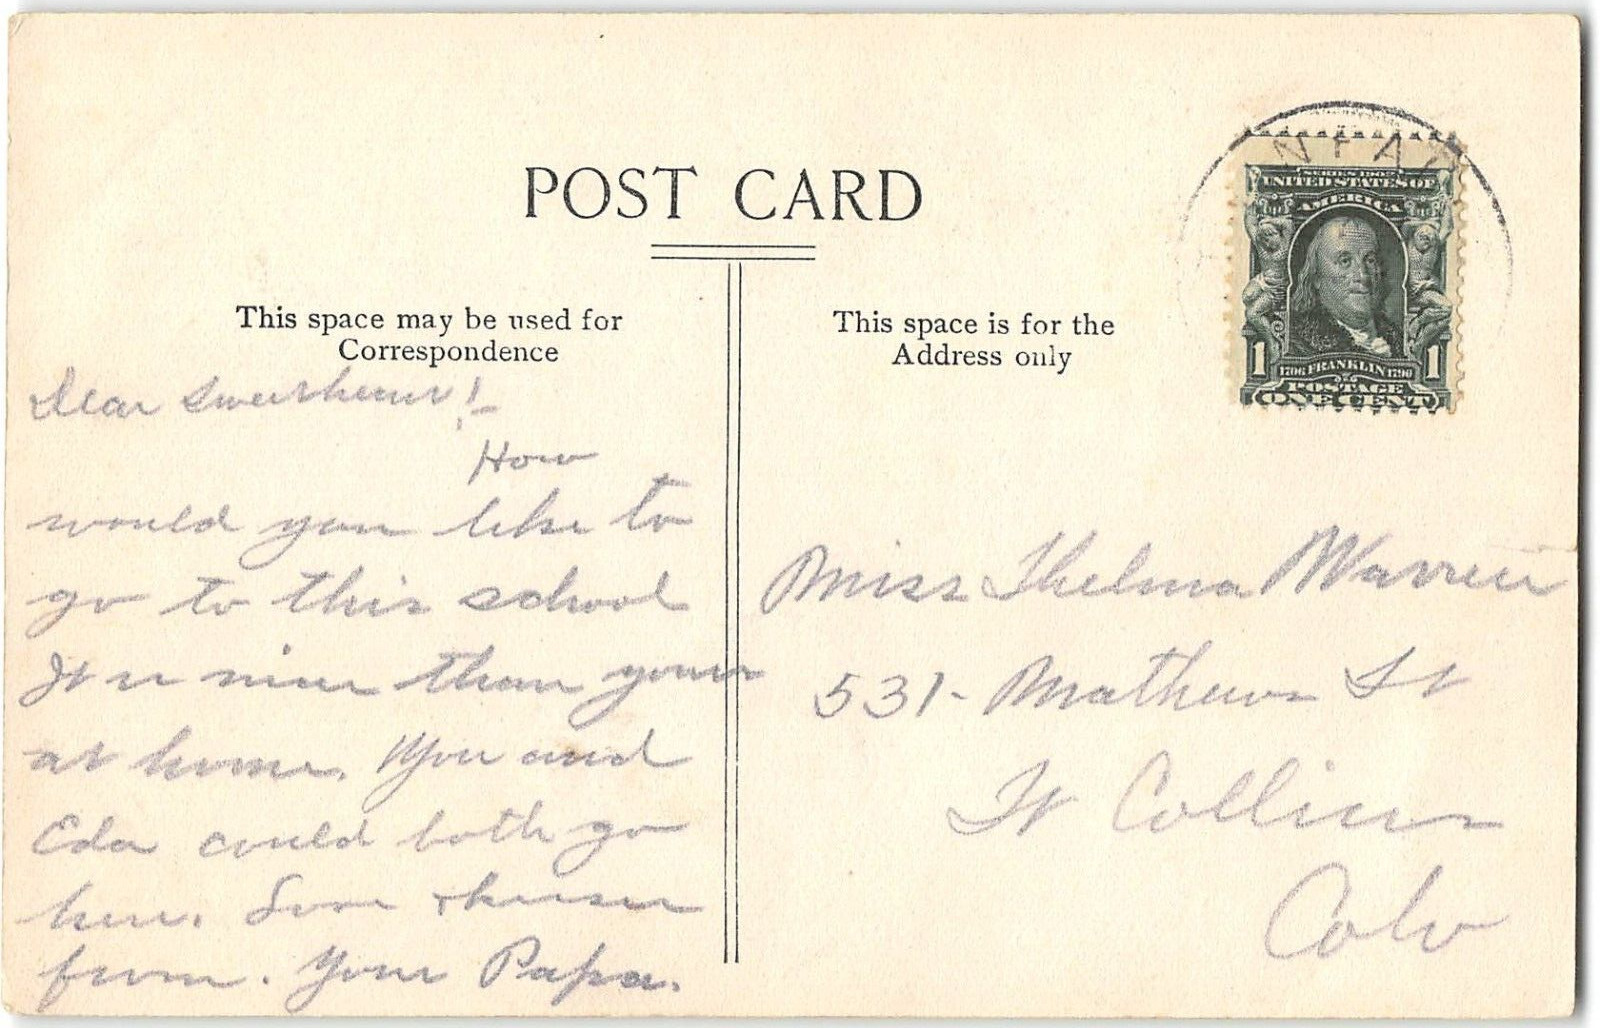 POST CARD
This space may be used for
Correspondence
This space is for the
Address only
NFA
SERIES 1902
UNITED STATES OF
AMERICA
1 1
1706 FRANKLIN 1790
POSTAGE
ONE CENT
Dear Sweetheart!-
How
would you like to
go to this school
It is nicer than yours
at home. You and
Eda could both go
here. Love & kisses
from. Your Papa.
Miss Thelma Warren
531- Mathews St
Ft Collins
Colo